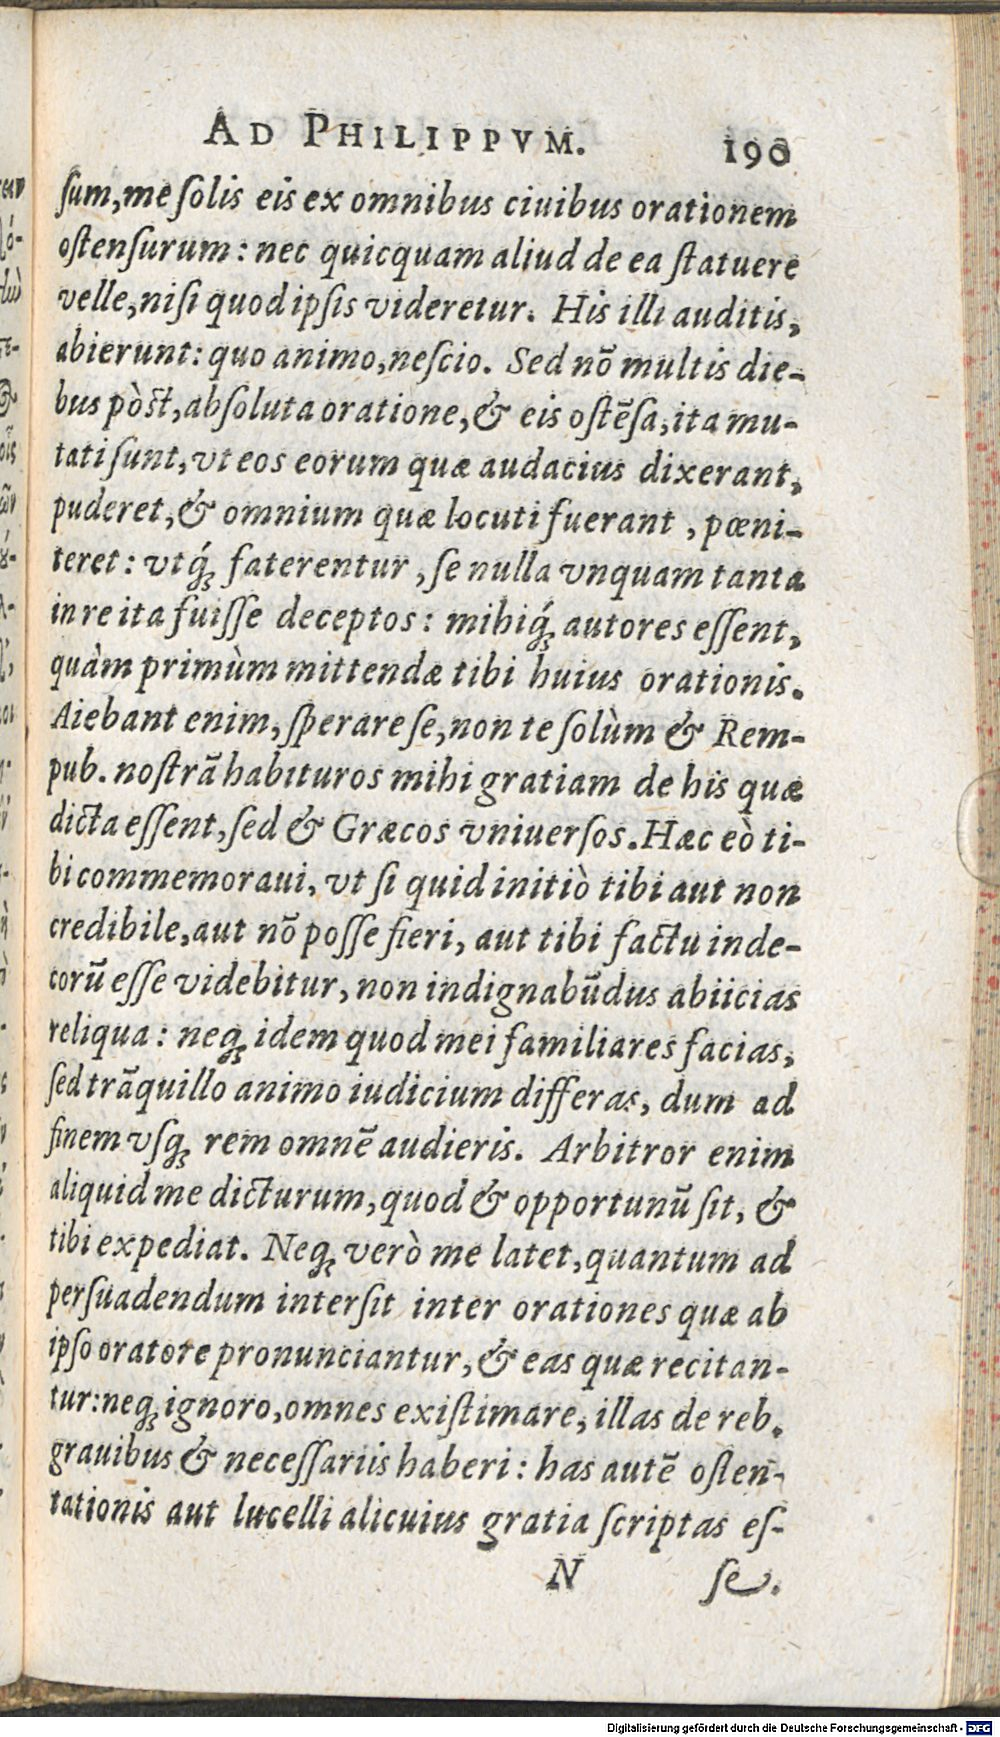 AD PHILIPPVM. 190
ſum, me ſolis eis ex omnibus ciuibus orationem
oſtenſurum: nec quicquam aliud de ea ſtatuere
velle, niſi quod ipſis videretur. His illi auditis,
abierunt: quo animo, neſcio. Sed nō multis die-
bus pòst, abſoluta oratione, & eis oſtēſa, ita mu-
tati ſunt, vt eos eorum quæ audacius dixerant,
puderet, & omnium quæ locuti fuerant, pœni-
teret: vtq́; faterentur, ſe nulla vnquam tanta
in re ita fuiſſe deceptos: mihiq́; autores eſſent,
quàm primùm mittendæ tibi huius orationis.
Aiebant enim, ſperare ſe, non te ſolùm & Rem-
pub. noſtrā habituros mihi gratiam de his quæ
dicta eſſent, ſed & Græcos vniuerſos. Hæc eò ti-
bi commemoraui, vt ſi quid initiò tibi aut non
credibile, aut nō poſſe fieri, aut tibi factu inde-
corū eſſe videbitur, non indignabūdus abiicias
reliqua: neq; idem quod mei familiares facias,
ſed trāquillo animo iudicium differas, dum ad
finem vſq; rem omnē audieris. Arbitror enim
aliquid me dicturum, quod & opportunū ſit, &
tibi expediat. Neq; verò me latet, quantum ad
perſuadendum interſit inter orationes quæ ab
ipſo oratore pronunciantur, & eas quæ recitan-
tur: neq; ignoro, omnes exiſtimare, illas de reb.
grauibus & neceſſariis haberi: has autē oſten-
tationis aut lucelli alicuius gratia ſcriptas eſ-
N ſe.
Digitalisierung gefördert durch die Deutsche Forschungsgemeinschaft - DFG